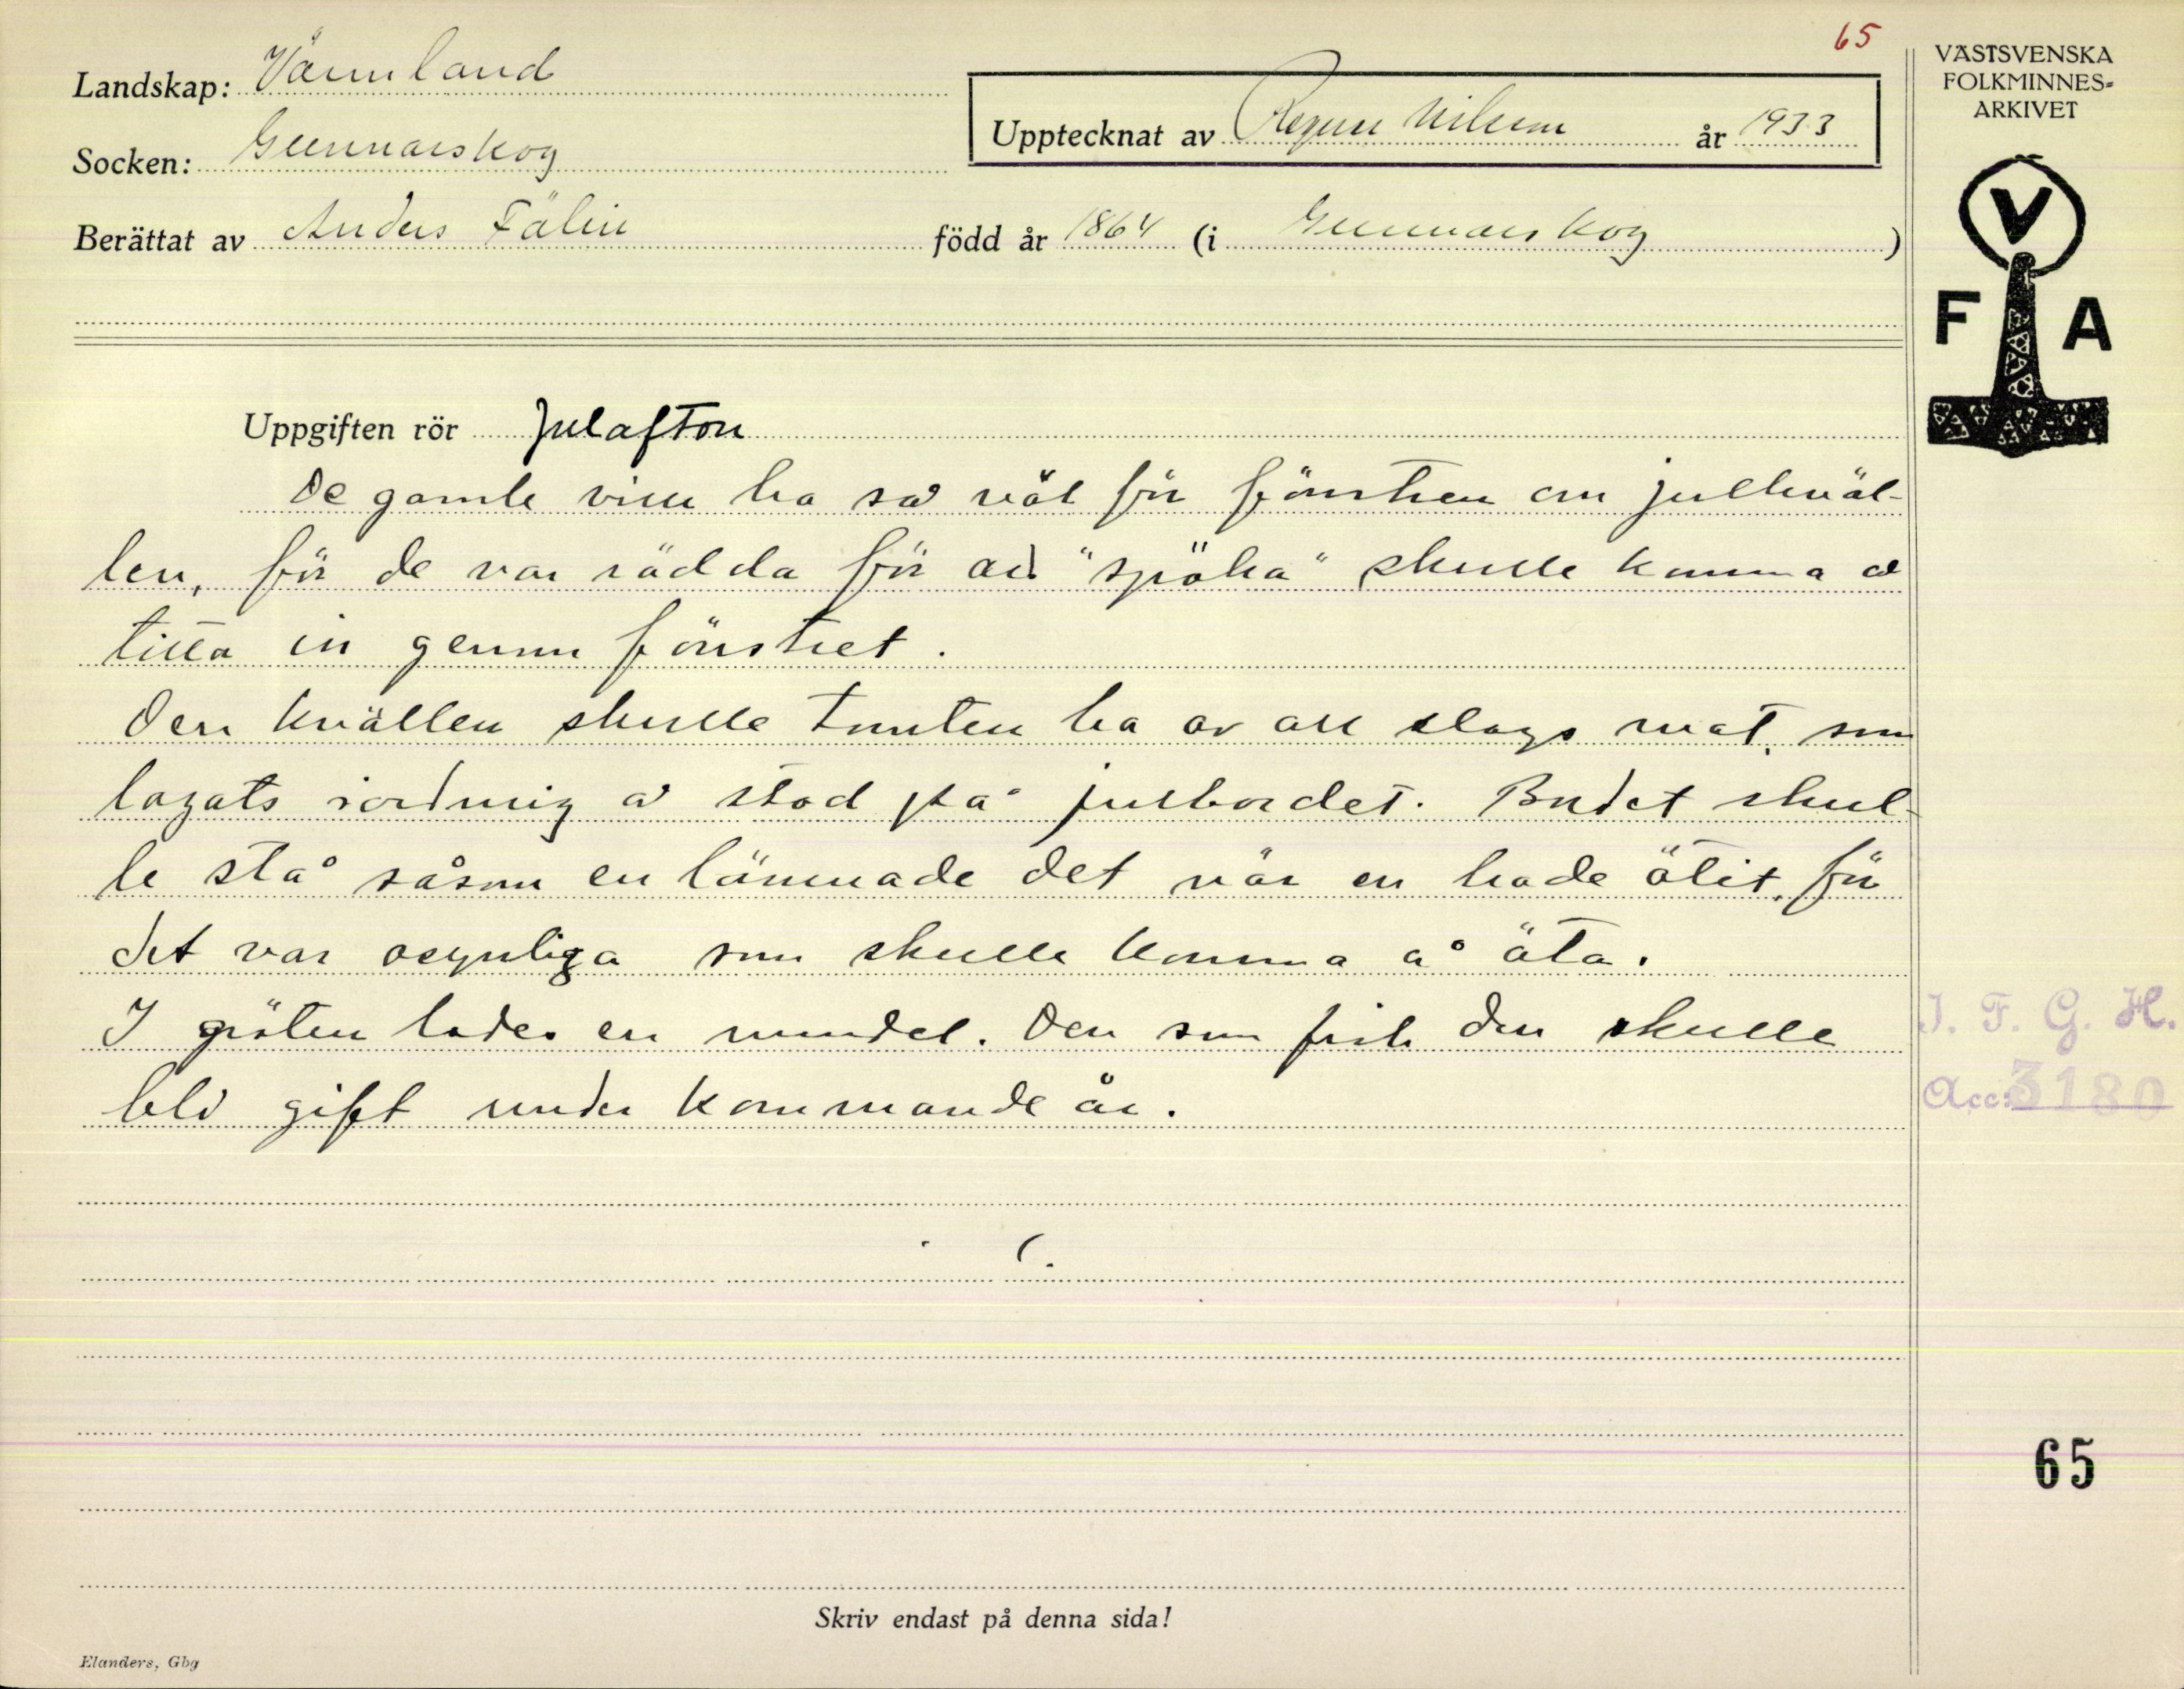 65
VÄSTSVENSKA
FOLKMINNES-
ARKIVET
Landskap: Värmland
Upptecknat av Ragnar Nilsson år 1933
Socken: Gunnarskog
Berättat av Anders Fälin född år 1864 (i Gunnarskog)
V
F A
Uppgiften rör Julafton
De gamle ville ha så väl för fönstren om julkväl-
len, för de var rädda för att "spöka" skulle komma å
titta in genom fönstret.
Den kvällen skulle tomten ha av all slags mat, som
lagats iordning å stod på julbordet. Bordet skul-
le stå såsom en lämnade det när en hade ätit, för
det var osynliga som skulle komma å äta.
I gröten lades en mandel. Den som fick den skulle
bli gift under kommande år.
I. F. G. H.
Acc: 3180
65
Skriv endast på denna sida!
Elanders, Gbg